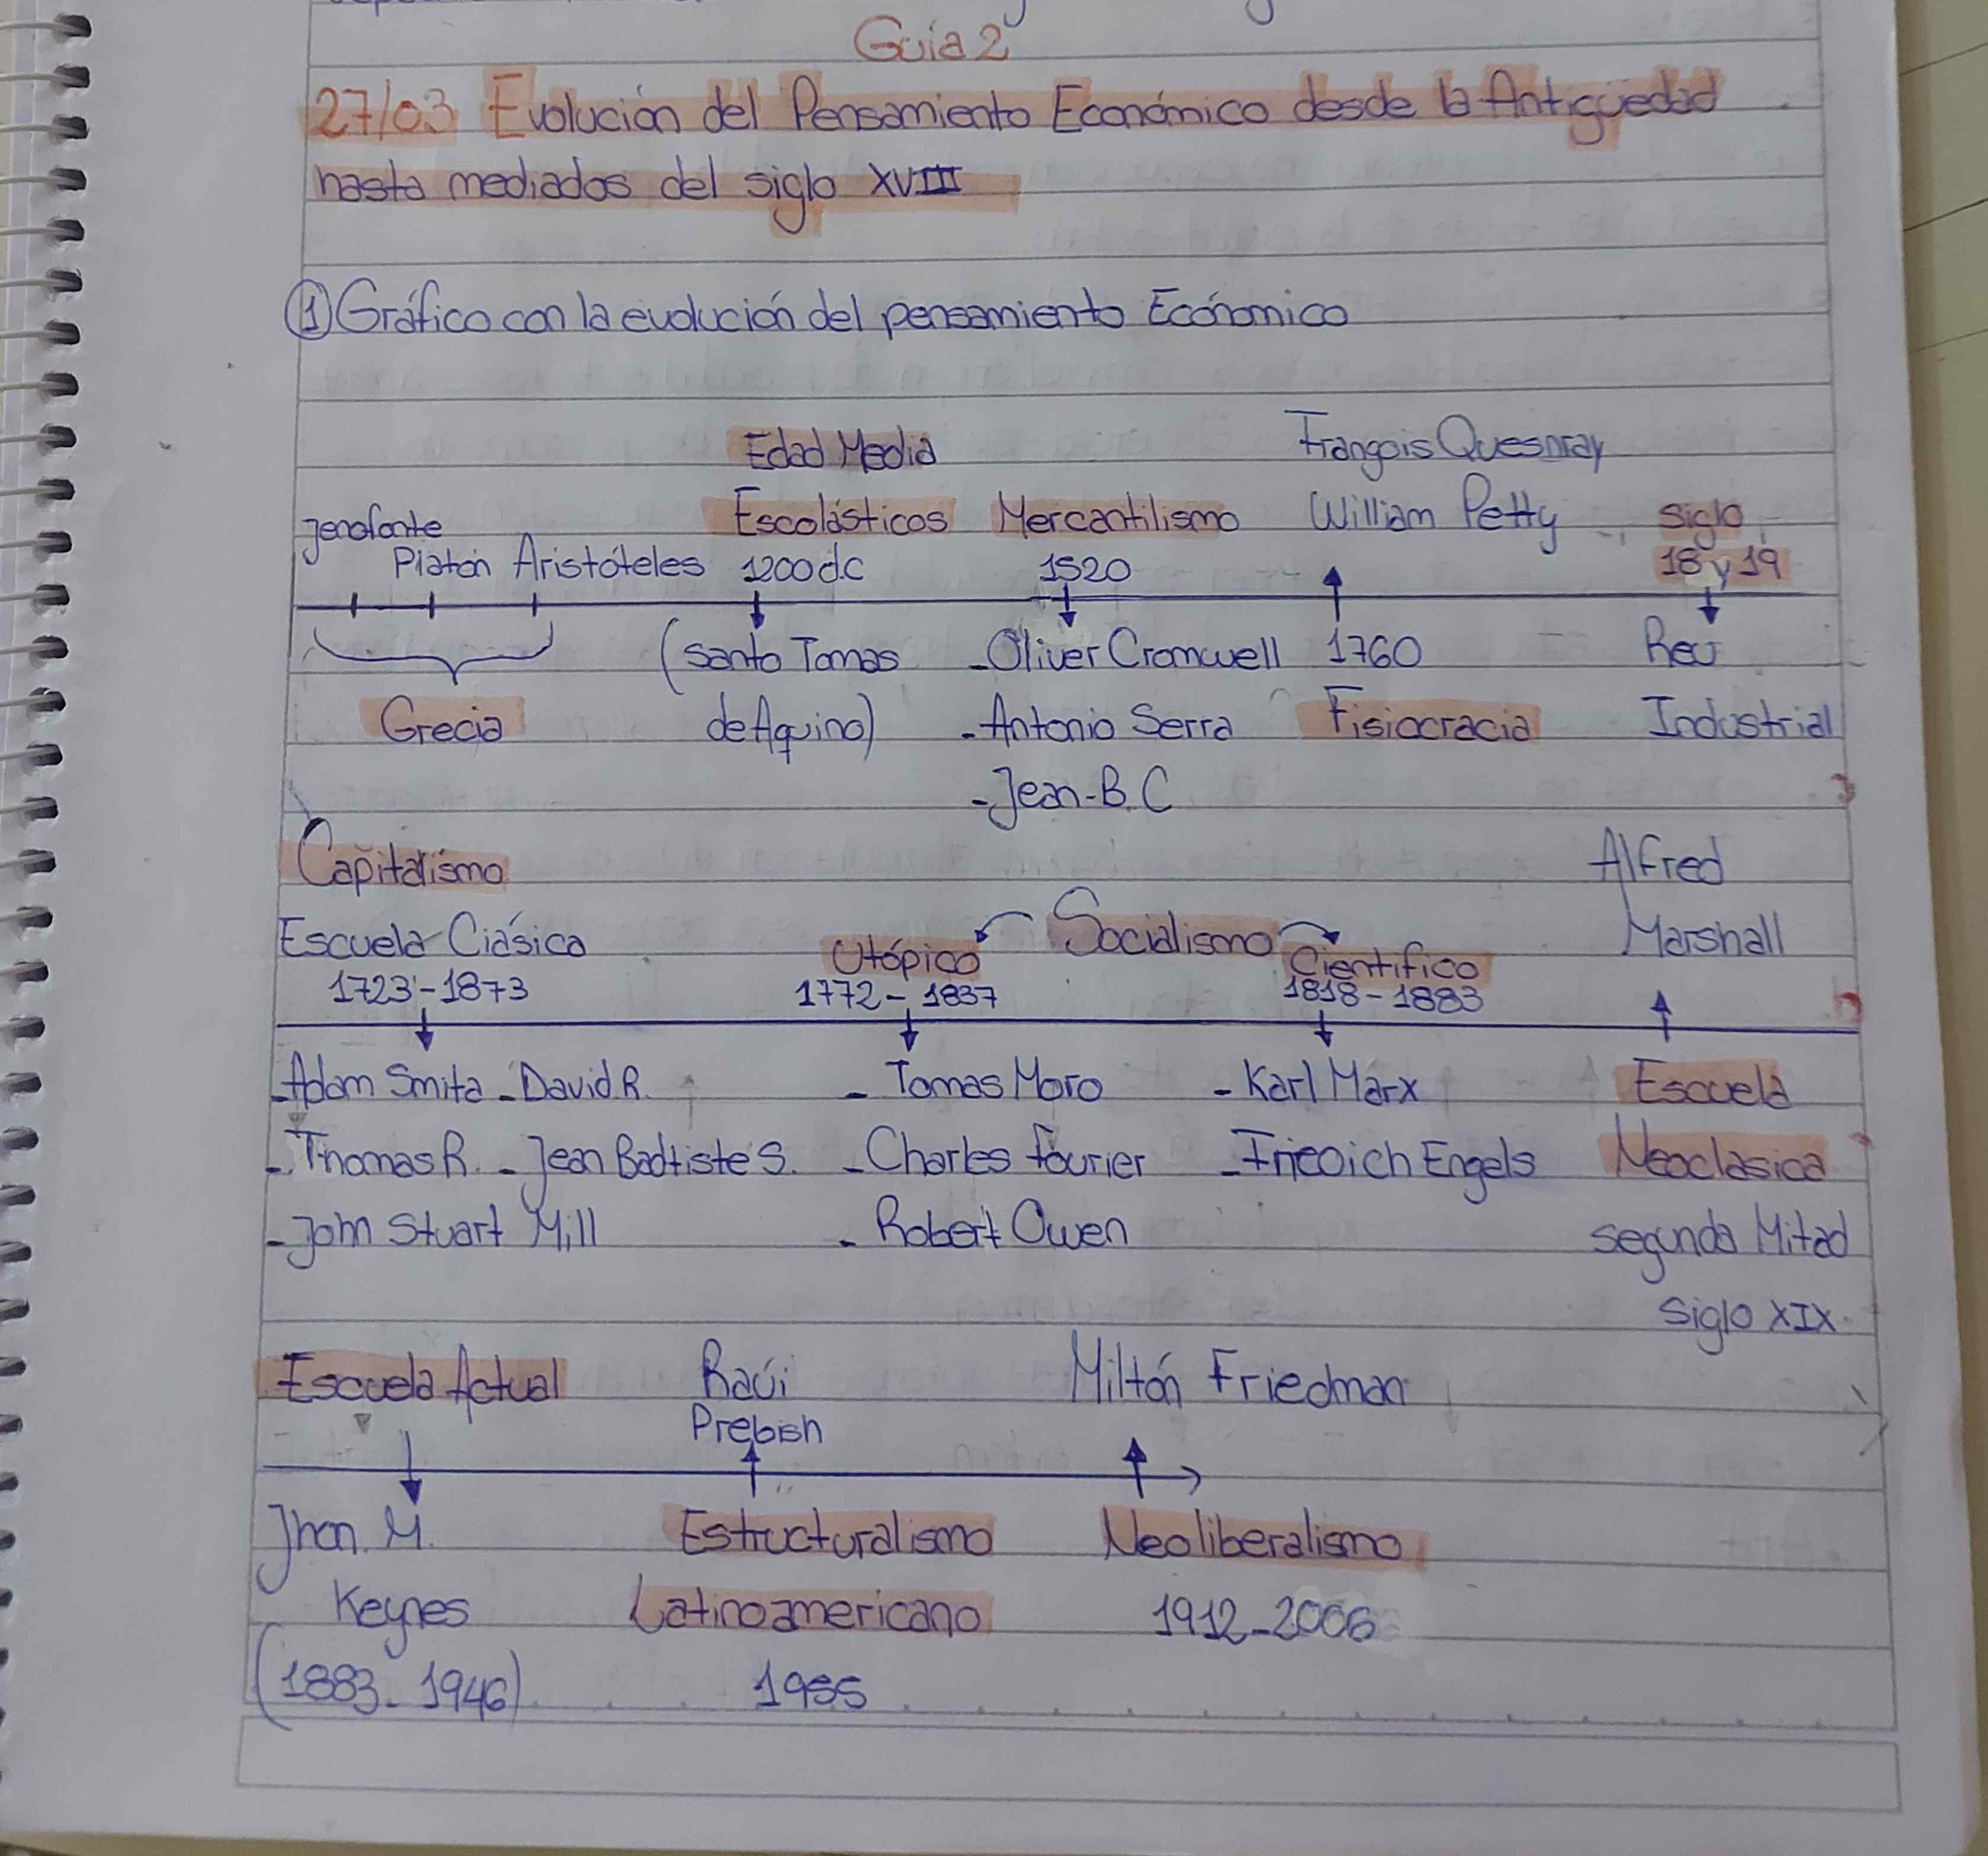 Guía 2
27/03 Evolución del Pensamiento Económico desde la Antigüedad
hasta mediados del siglo XVIII
① Gráfico con la evolución del pensamiento Económico
Edad Media
François Quesnay
Jenofante
Escolásticos
Mercantilismo
William Petty
siglo
Platón Aristóteles
1200 d.C
1520
18 y 19
(santo Tomas
- Oliver Cromwell
1760
Rev
Grecia
de Aquino)
- Antonio Serra
Fisiocracia
Industrial
- Jean-B.C
Capitalismo
Alfred
Escuela Clásica
Socialismo
Marshall
Utópico
Científico
1723-1873
1772-1837
1818-1883
- Adam Smita - David R.
- Tomas Moro
- Karl Marx
Escuela
- Thomas R. - Jean Badtiste S.
- Charles Fourier
- Friedich Engels
Neoclásica
- John Stuart Mill
- Robert Owen
segunda Mitad
Siglo XIX.
Escuela Actual
Raúl
Miltón Friedman
Prebish
Jhon. M.
Estructuralismo
Neoliberalismo
Keynes
Latinoamericano
1912-2006
(1883-1946)
1985